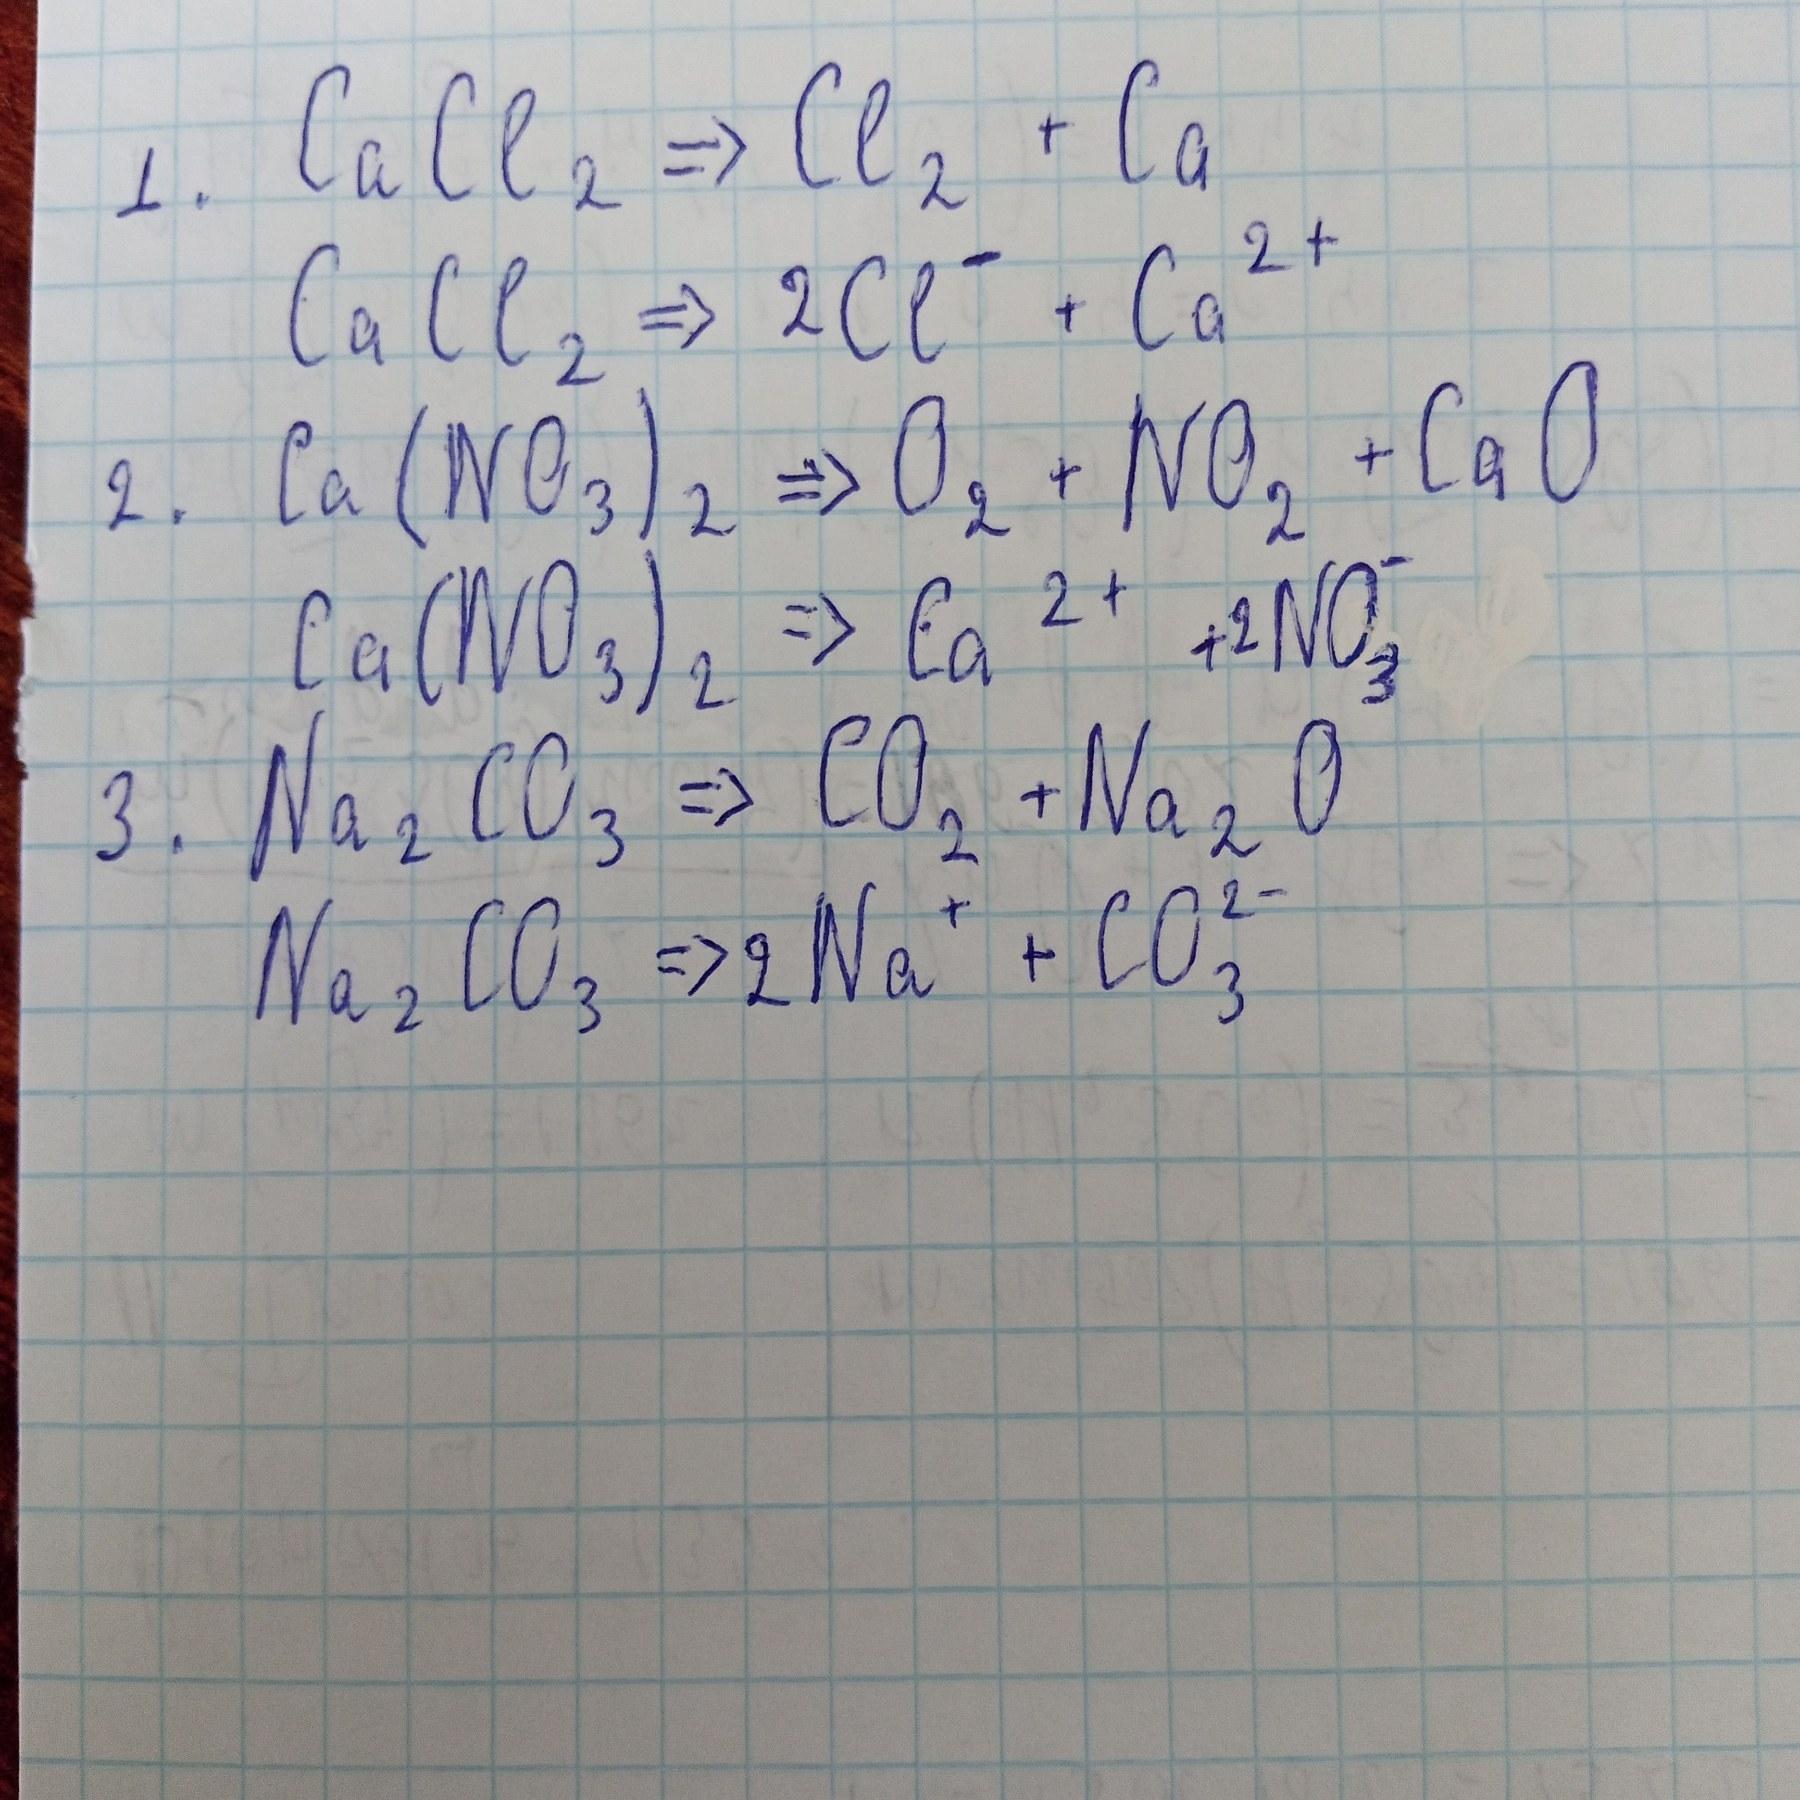 1. CaCl₂ => Cl₂ + Ca
CaCl₂ => 2Cl⁻ + Ca²⁺
2. Ca(NO₃)₂ => O₂ + NO₂ + CaO
Ca(NO₃)₂ => Ca²⁺ + 2NO₃⁻
3. Na₂CO₃ => CO₂ + Na₂O
Na₂CO₃ => 2Na⁺ + CO₃²⁻